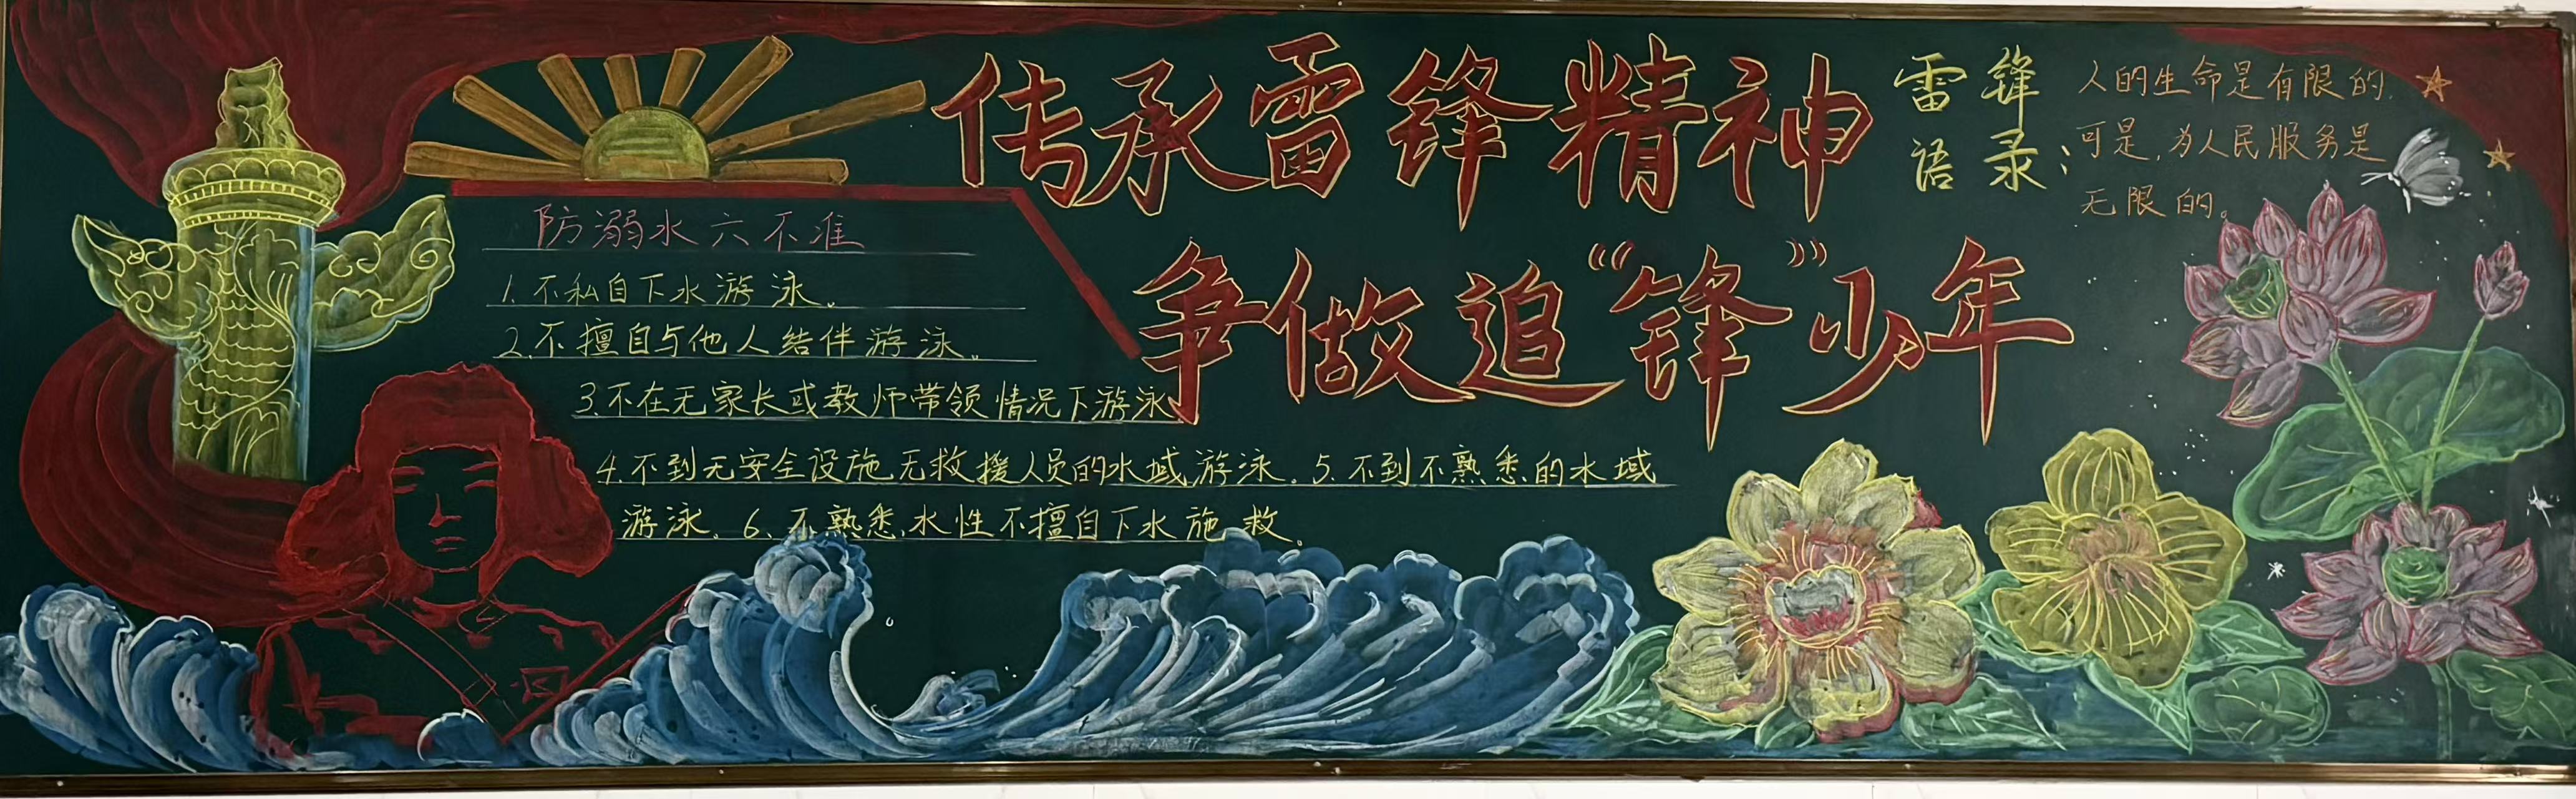 传承雷锋精神
争做追“锋”少年
雷锋
语录：
人的生命是有限的，
可是，为人民服务是
无限的。
防溺水六不准
1.不私自下水游泳。
2.不擅自与他人结伴游泳。
3.不在无家长或教师带领情况下游泳
4.不到无安全设施无救援人员的水域游泳。5.不到不熟悉的水域
游泳。6、不熟悉水性不擅自下水施救。